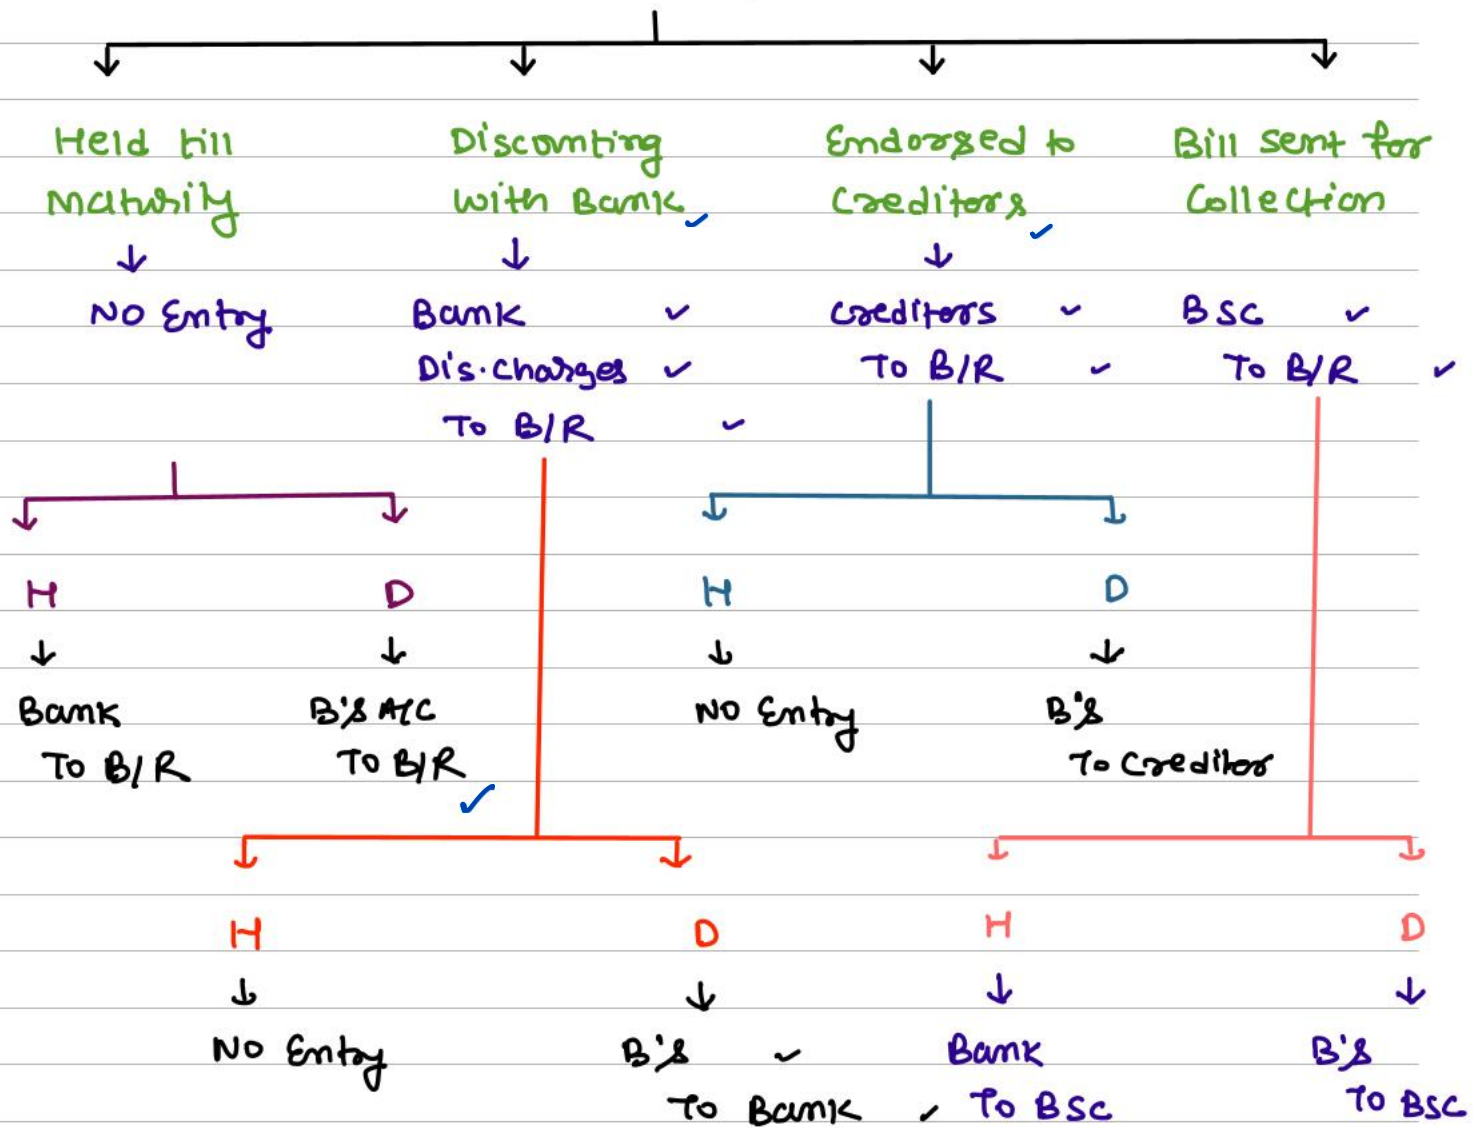 Held till
Maturity
Discounting
with Bank
Endorsed to
Creditors
Bill sent for
Collection
No Entry
Bank
Dis. Charges
To B/R
Creditors
To B/R
BSC
To B/R
H
D
H
D
Bank
To B/R
B's A/C
To B/R
No Entry
B's
To Creditor
H
D
H
D
No Entry
B's
To Bank
Bank
To BSC
B's
To BSC